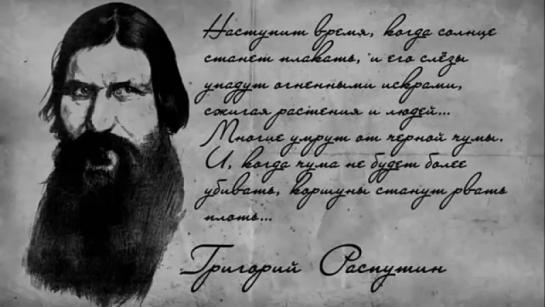 Наступит время, когда солнце
станет плакать, и его слёзы
упадут огненными искрами,
сжигая растения и людей...
Многие умрут от черной чумы.
И, когда чума не будет более
убивать, коршуны станут рвать
плоть...
Григорий Распутин